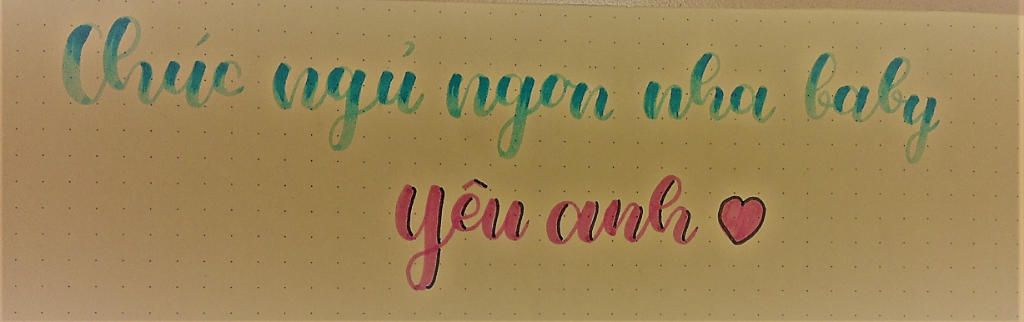 Chúc ngủ ngon nha baby
Yêu anh